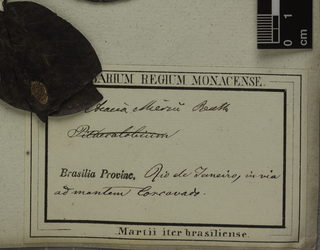 0 1
cm
BARIUM REGIUM MONACENSE.
Acacia Benth
Pithecolobium
Brasilia Provinc. Rio de Janeiro, in via
ad montem Corcovado.
Martii iter brasiliense.